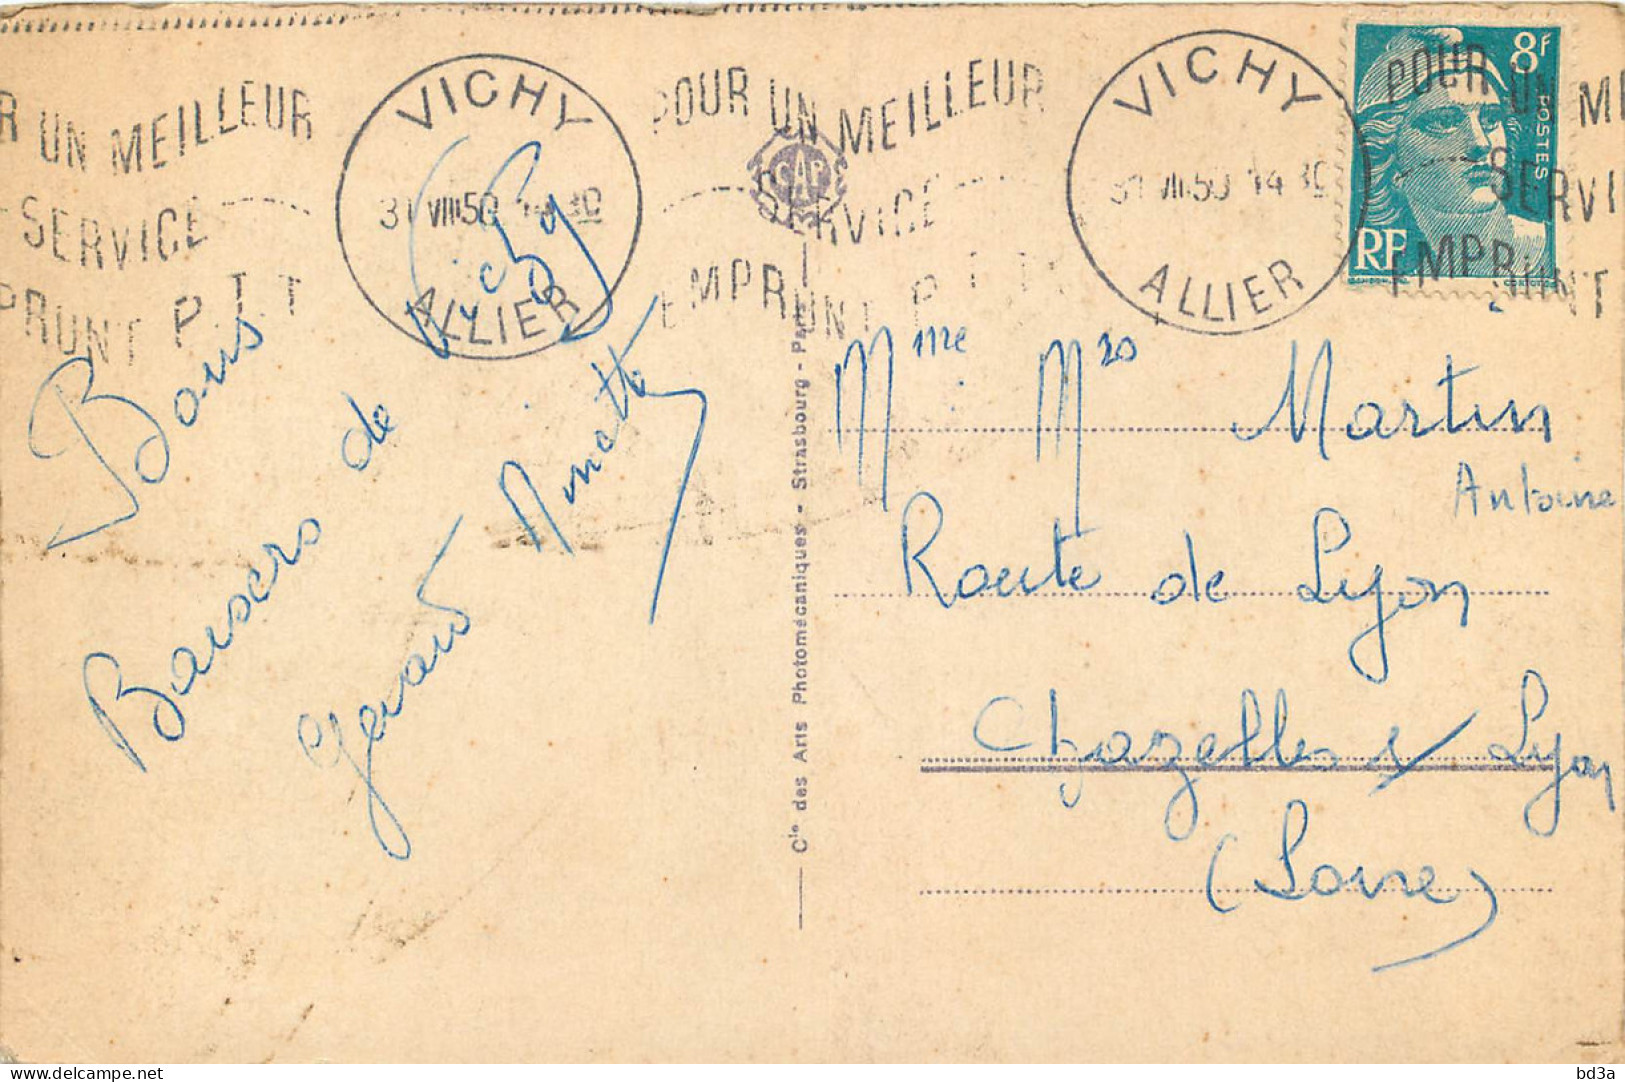 UN MEILLEUR
SERVICE
PRUNT P T T
VICHY
31 VIII 50 14 30
ALLIER
POUR UN MEILLEUR
SERVICE
EMPRUNT P T T
VICHY
31 VIII 50 14 30
ALLIER
8F
POSTES
RF
POUR UN ME
SERVI
EMPRUNT
CAP
Bons
Baisers de Vichy
Gerard Minette
Cie des Arts Photomécaniques - Strasbourg - Paris
Mme Mrs Martin
Antoine
Route de Lyon
Chazelles s/ Lyon
(Loire)
delcampe.net
bd3a